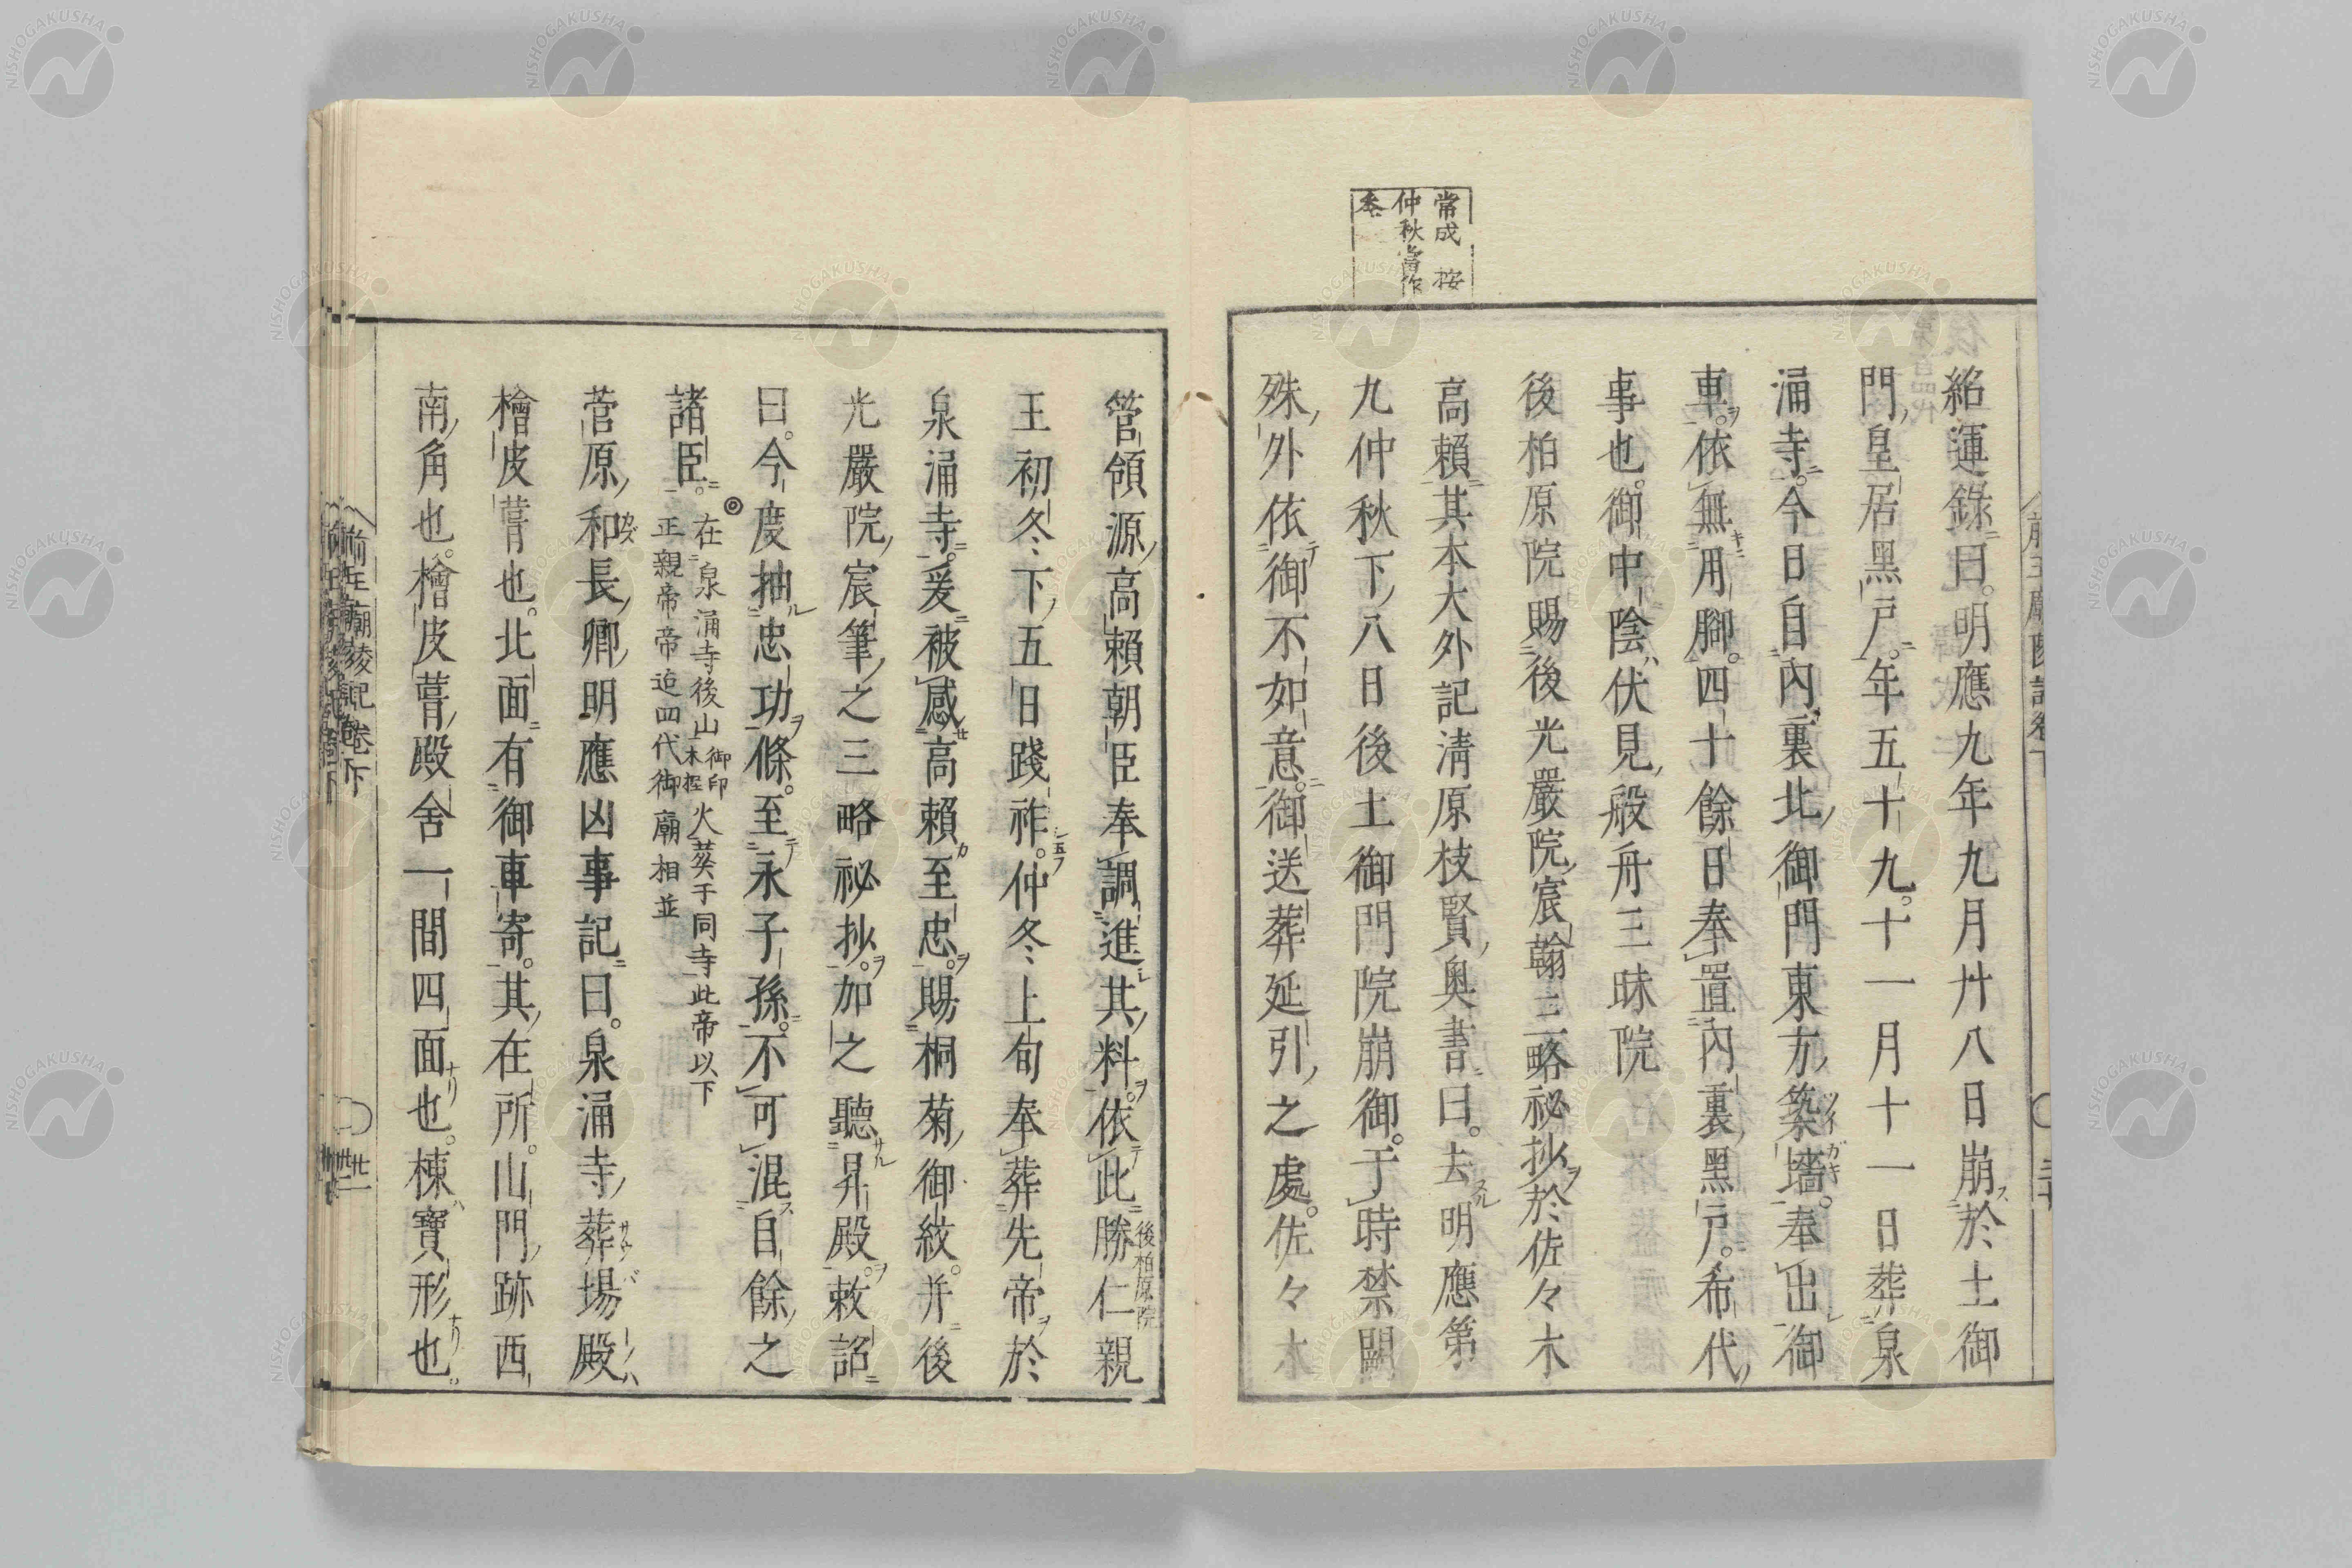 常成 按
仲秋當作
季
紹運錄曰。明應九年九月廿八日崩於土御
門皇居黑戶。年五十九。十一月十一日葬泉
涌寺。今日自內裏北御門東方築墻。奉出御
車。依無用脚。四十餘日奉置內裏黑戶。希代
事也。御中陰伏見般舟三昧院
後柏原院賜後光嚴院宸翰三略祕抄於佐々木
高賴其本大外記淸原枝賢奧書曰。去明應第
九仲秋下八日後土御門院崩御。于時禁闕
殊外依御不如意。御送葬延引之處。佐々木
管領源高賴朝臣奉調進其料。依此勝仁親
後柏原院
王初冬下五日踐祚。仲冬上旬奉葬先帝於
泉涌寺。爰被感高賴至忠。賜桐菊御紋。并後
光嚴院宸筆之三略祕抄。加之聽昇殿。敕詔
曰。今度抽忠功條。至永子孫。不可混自餘之
諸臣。◎在泉涌寺後山御印木樒火葬于同寺此帝以下
正親帝帝迄四代御廟相並
菅原和長卿明應凶事記曰。泉涌寺葬場殿
檜皮葺也。北面有御車寄。其在所。山門跡西
南角也。檜皮葺殿舍一間四面也。棟寶形也。
前王廟陵記卷下
廿一